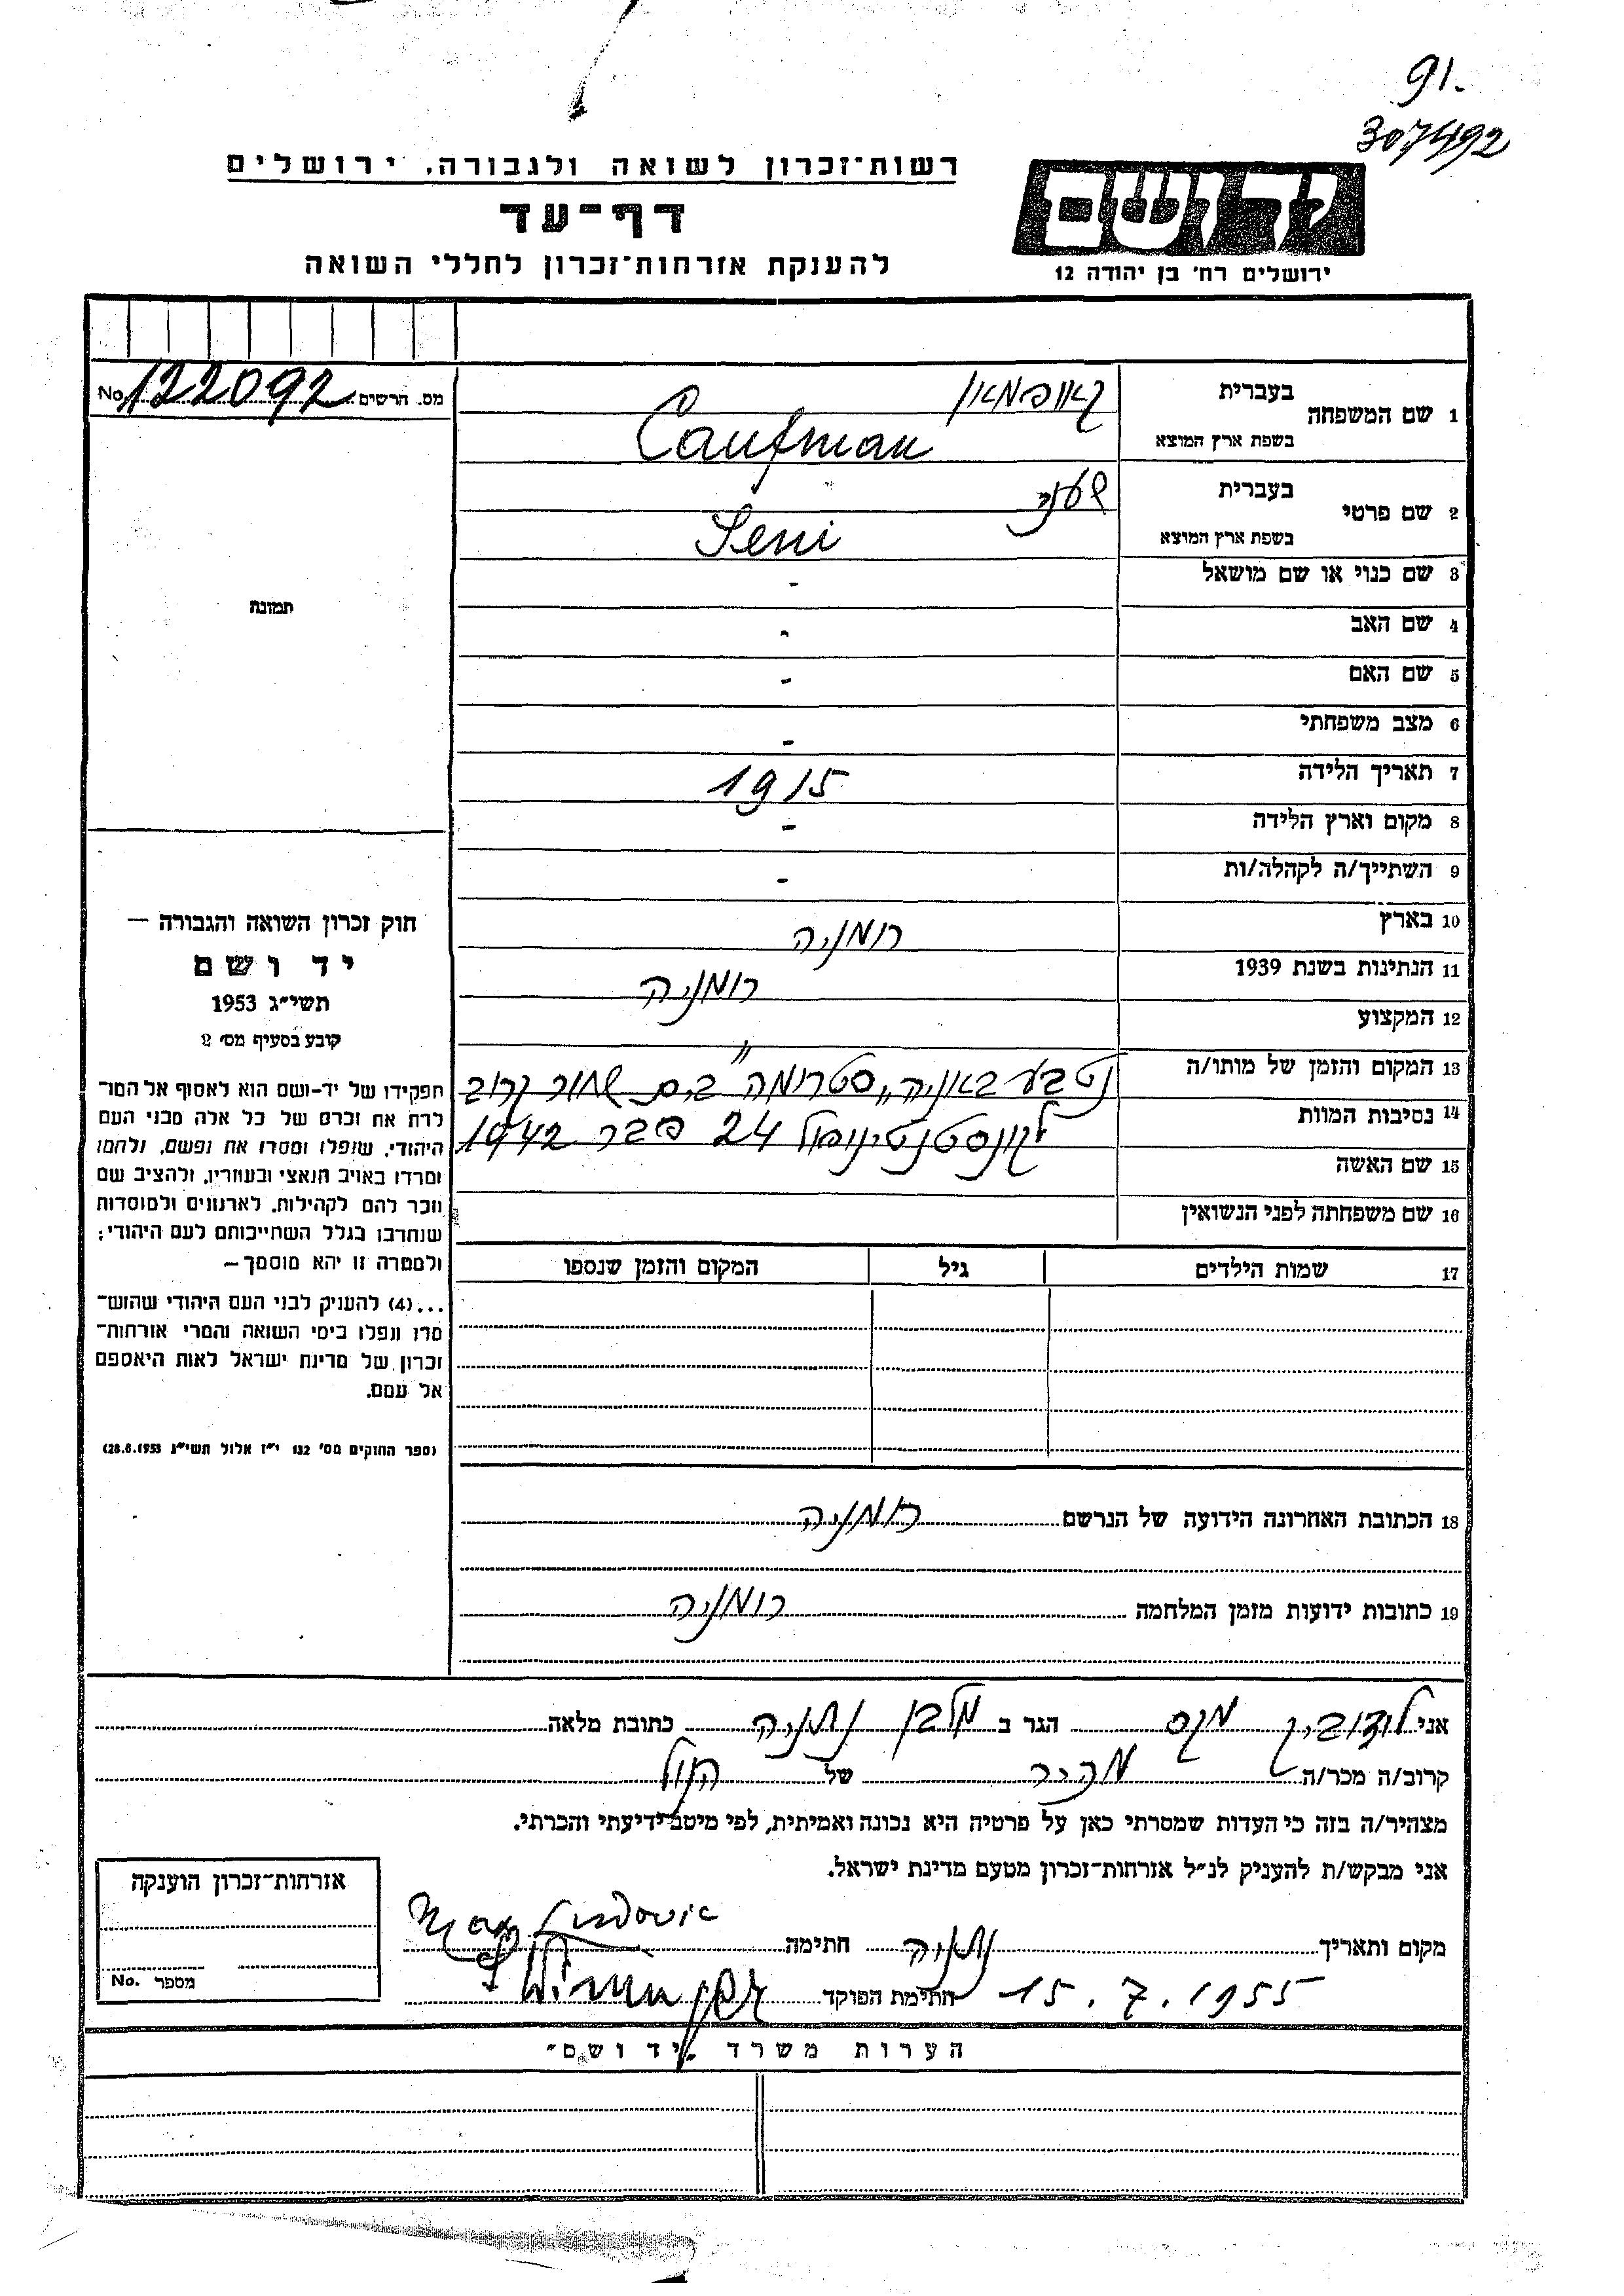 91.
307492
רשות־זכרון לשואה ולגבורה, ירושלים
דף־עד
להענקת אזרחות־זכרון לחללי השואה
יד ושם
ירושלים רח' בן יהודה 12
מס. הרשים No. 122092
תמונה
חוק זכרון השואה והגבורה —
יד ושם
תשי"ג 1953
קובע בסעיף מס' 2
תפקידו של יד-ושם הוא לאסוף אל המו־
לדת את זכרם של כל אלה מבני העם
היהודי, שנפלו ומסרו את נפשם, נלחמו
ומרדו באויב הנאצי ובעוזריו, ולהציב שם
וזכר להם לקהילות, לארגונים ולמוסדות
שנחרבו בגלל השתייכותם לעם היהודי;
ולמטרה זו יהא מוסמך —
...(4) להעניק לבני העם היהודי שהוש־
מדו ונפלו בימי השואה והמרי אזרחות־
זכרון של מדינת ישראל לאות היאספם
אל עמם.
(ספר החוקים מס' 132 י"ז אלול תשי"ג 28.8.1953)
1 שם המשפחה בעברית קאופמאן
בשפת ארץ המוצא Caufman
2 שם פרטי בעברית שעני
בשפת ארץ המוצא Seni
3 שם כנוי או שם מושאל -
4 שם האב -
5 שם האם -
6 מצב משפחתי -
7 תאריך הלידה 1915
8 מקום וארץ הלידה -
9 השתייך/ה לקהלה/ות -
10 בארץ רומניה
11 הנתינות בשנת 1939 רומניה
12 המקצוע
13 המקום והזמן של מותו/ה נטבע באוניה „סטרומה" בים שחור קרוב
14 נסיבות המוות לקונסטנטינופול 24 פבר 1942
15 שם האשה
16 שם משפחתה לפני הנשואין
17 שמות הילדים גיל המקום והזמן שנספו
18 הכתובת האחרונה הידועה של הנרשם רומניה
19 כתובות ידועות מזמן המלחמה רומניה
אני לודוביק מקס הגר ב מלבן נתניה כתובת מלאה
קרוב/ה מכר/ה מכיר של הנ"ל
מצהיר/ה בזה כי העדות שמסרתי כאן על פרטיה היא נכונה ואמיתית, לפי מיטב ידיעתי והכרתי.
אני מבקש/ת להעניק לנ"ל אזרחות־זכרון מטעם מדינת ישראל.
מקום ותאריך נתניה חתימה Max Ludovic
15.7.1955 חתימת הפוקד
אזרחות־זכרון הוענקה
מספר No.
הערות משרד „יד ושם"